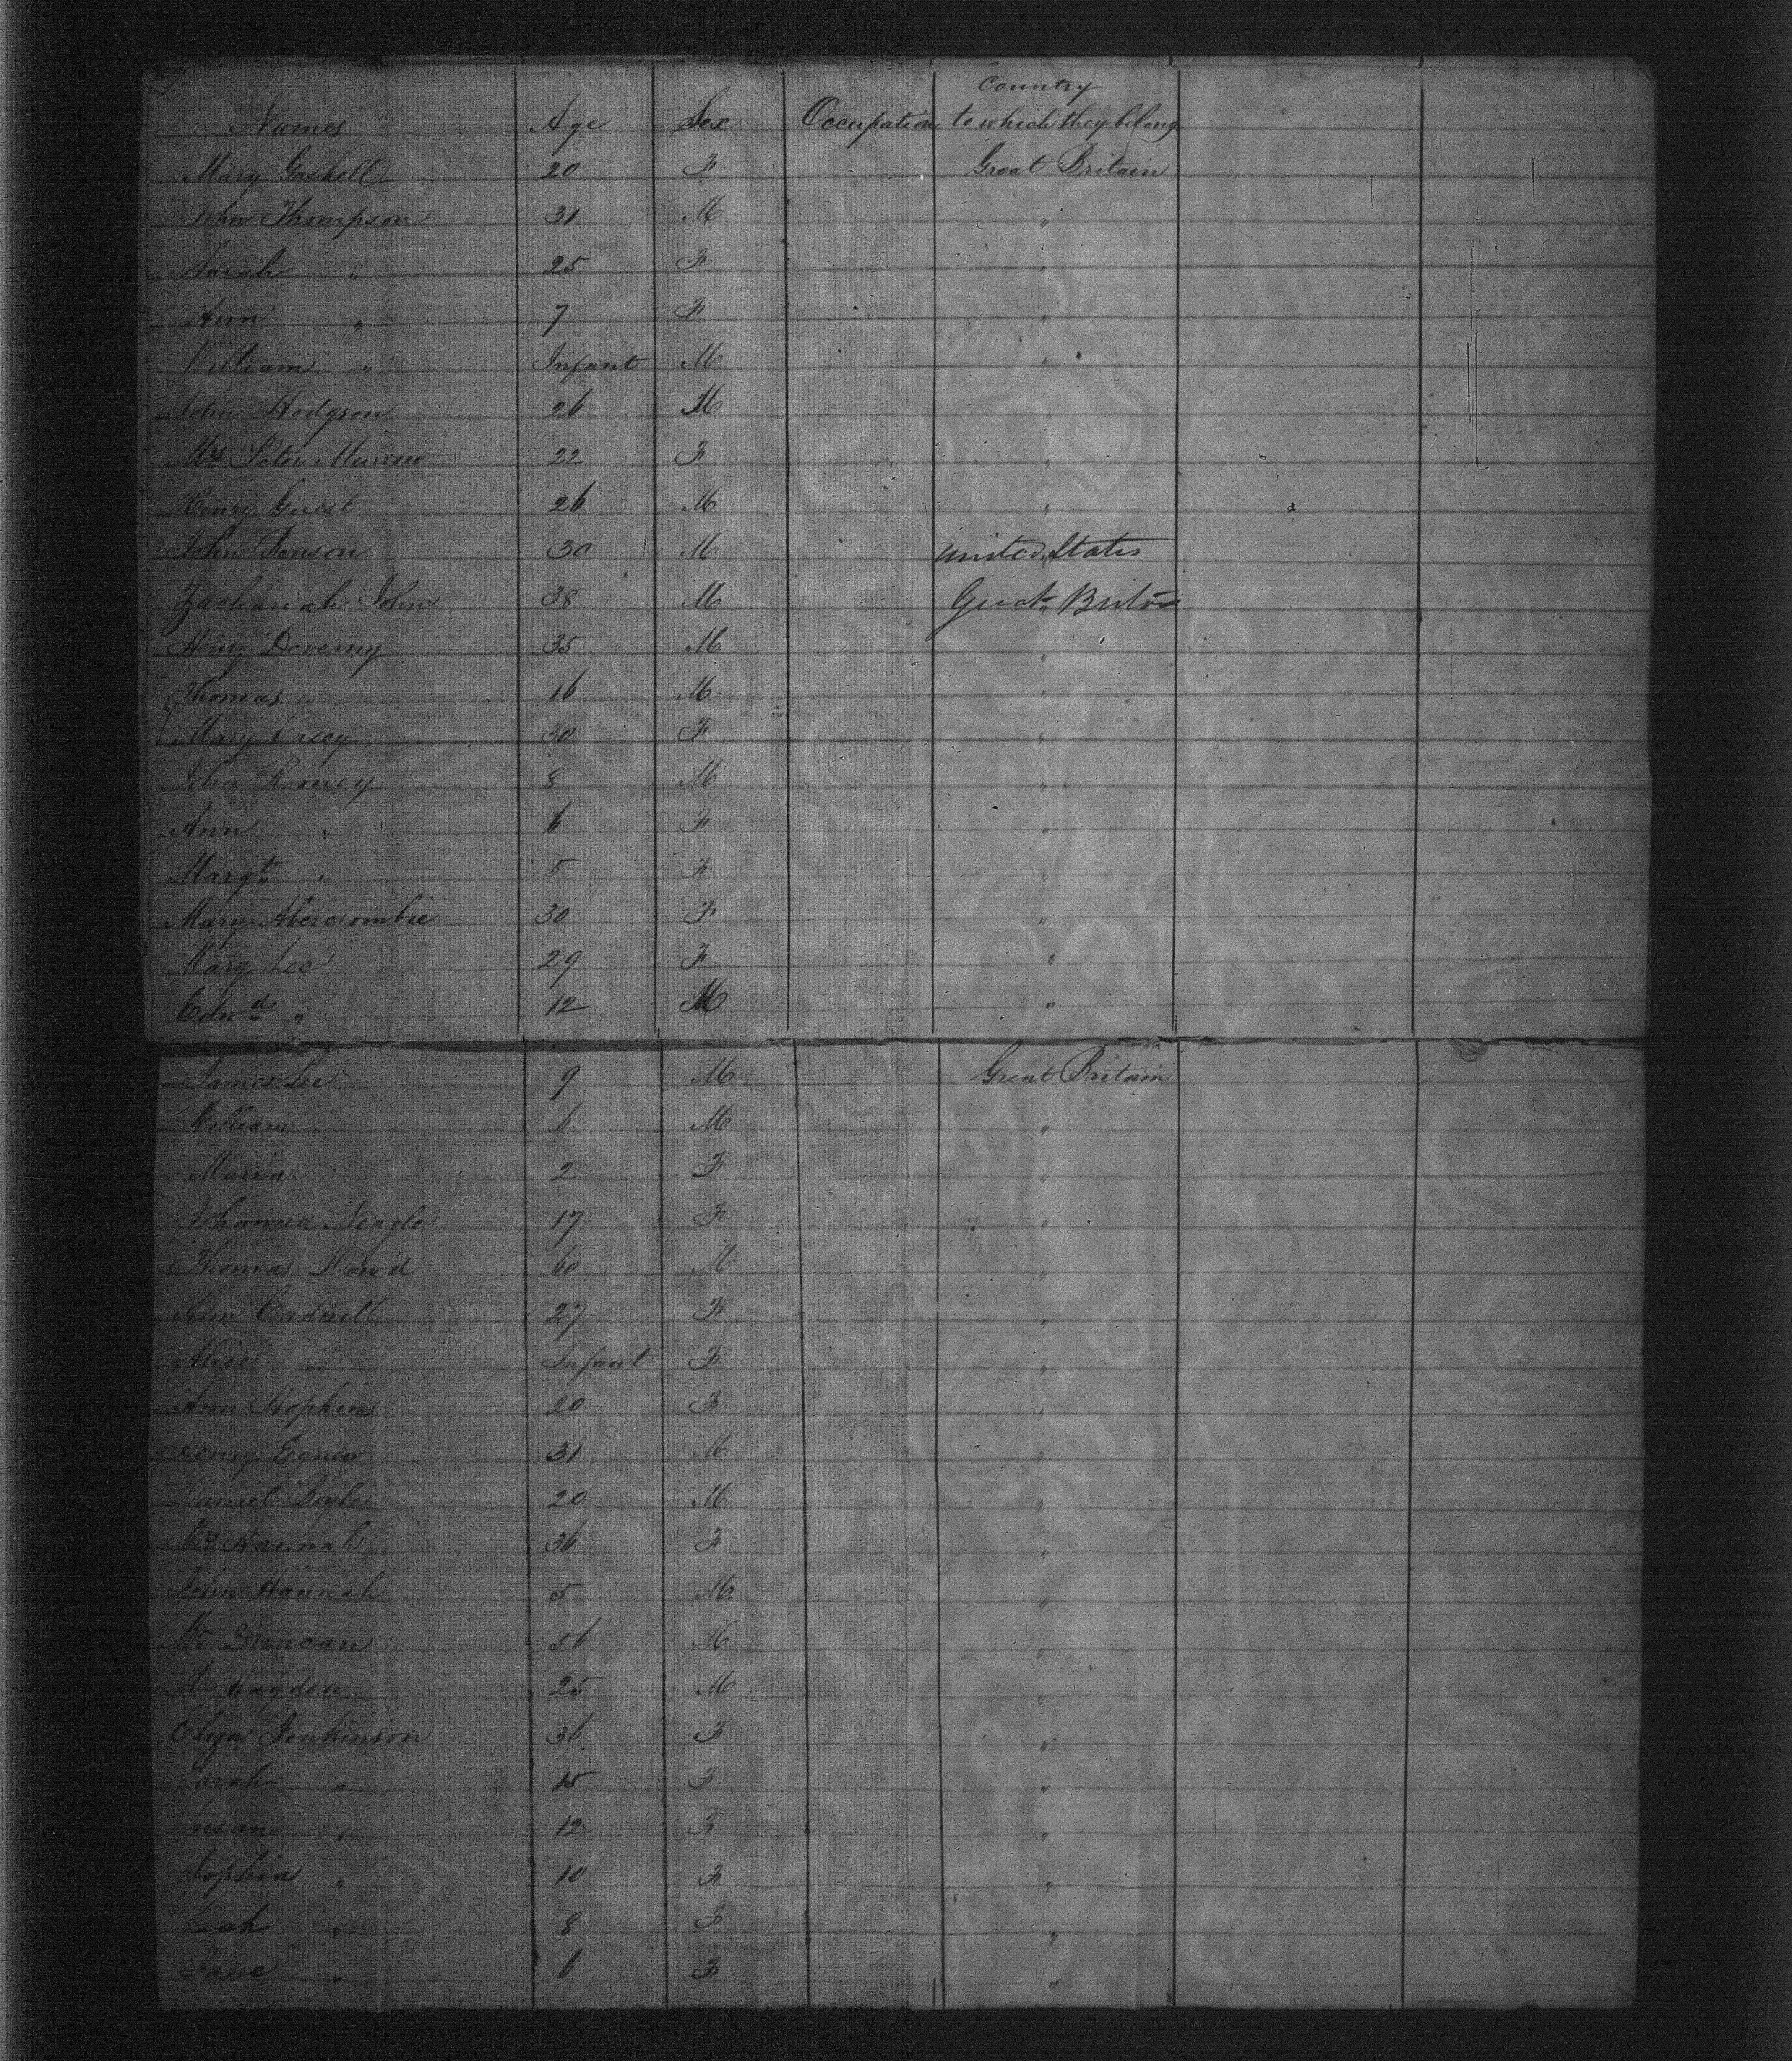 Country
Names Age Sex Occupation to which they belong
Mary Gaskell 20 F Great Britain
John Thompson 31 M "
Sarah " 25 F "
Ann " 7 F "
William " Infant M "
John Hodgson 26 M "
Mrs Peter 22 F "
Henry Guest 26 M "
John Fenson 30 M United States
Zachariah John 38 M Great Britain
Henry Deverny 35 M "
Thomas " 16 M "
Mary Casey 30 F "
John Romey 8 M "
Ann " 6 F "
Margt " 5 F "
Mary Abercrombie 30 F "
Mary Lee 29 F "
Edwd " 12 M "
James Lee 9 M Great Britain
William " 6 M "
Maria 2 F "
Johanna Neagle 17 F "
Thomas Dowd 60 M "
Ann Cadwell 27 F "
Alice " Infant F "
Ann Hopkins 20 F "
Henry Egnew 31 M "
Daniel Boyle 20 M "
Mrs Hannah 36 F "
John Hannah 5 M "
Mr Duncan 56 M "
Mr Hayden 25 M "
Eliza Jenkinson 36 F "
Sarah " 15 F "
Susan " 12 F "
Sophia " 10 F "
Leah " 8 F "
Jane " 6 F "